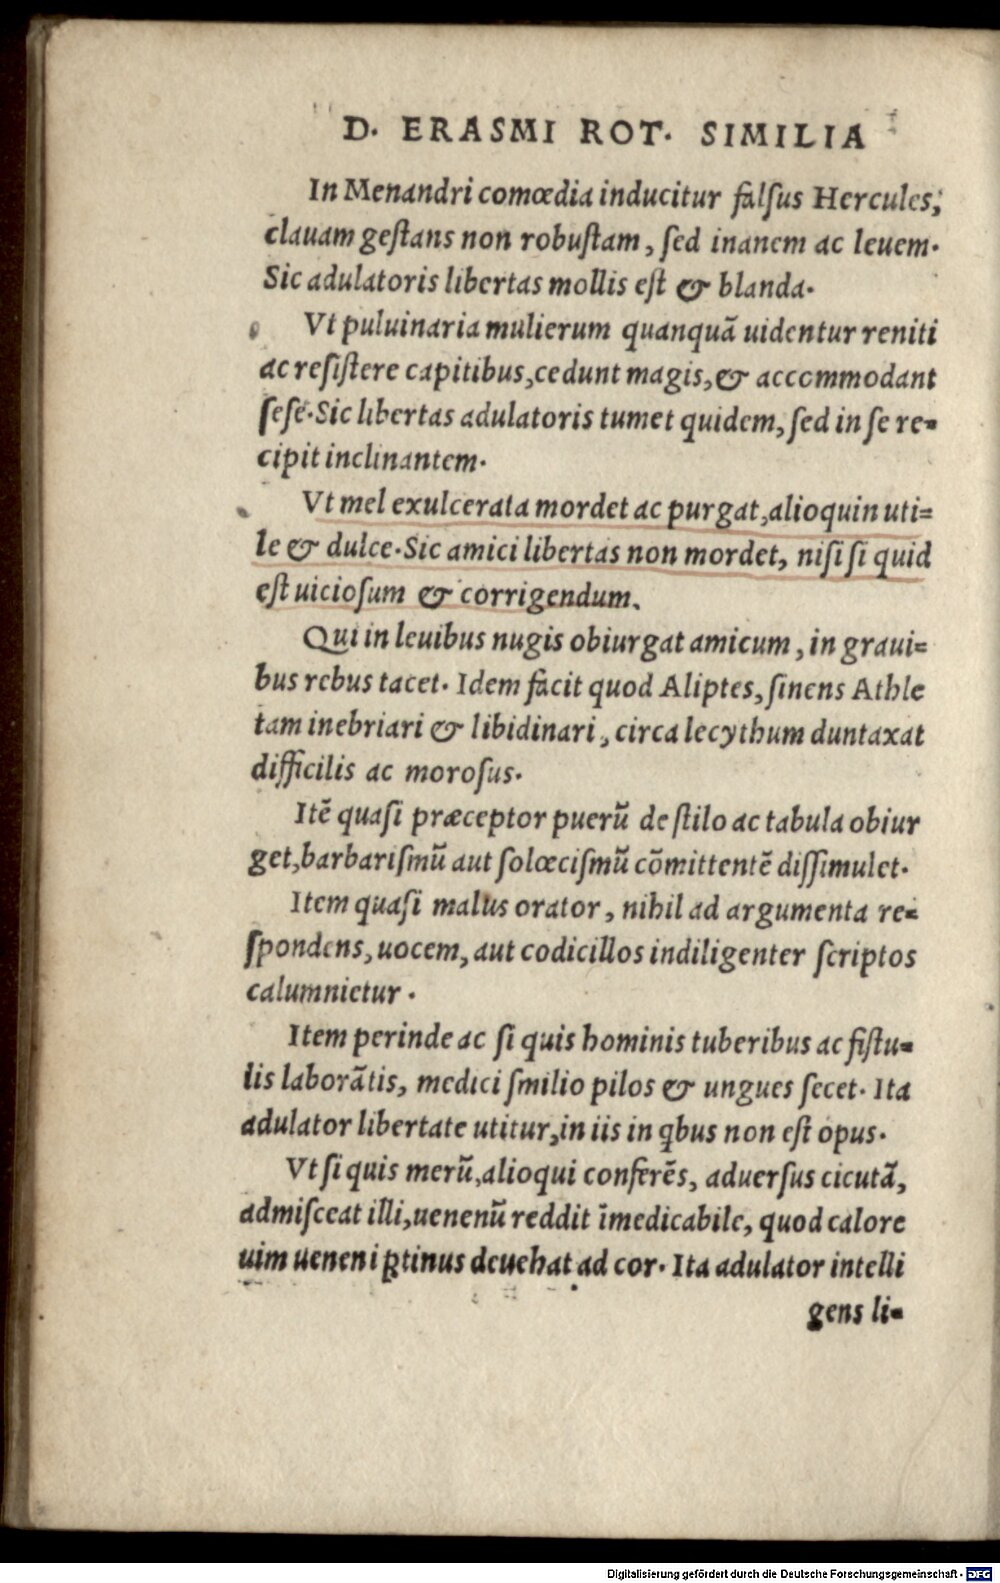 D. ERASMI ROT. SIMILIA
In Menandri comœdia inducitur falsus Hercules,
clauam gestans non robustam, sed inanem ac leuem.
Sic adulatoris libertas mollis est & blanda.
Vt puluinaria mulierum quanquã uidentur reniti
ac resistere capitibus, cedunt magis, & accommodant
sese. Sic libertas adulatoris tumet quidem, sed in se re-
cipit inclinantem.
Vt mel exulcerata mordet ac purgat, alioquin uti=
le & dulce. Sic amici libertas non mordet, nisi si quid
est uiciosum & corrigendum.
Qui in leuibus nugis obiurgat amicum, in graui=
bus rebus tacet. Idem facit quod Aliptes, sinens Athle
tam inebriari & libidinari, circa lecythum duntaxat
difficilis ac morosus.
Itẽ quasi præceptor puerũ de stilo ac tabula obiur
get, barbarismũ aut solœcismũ cõmittentẽ dissimulet.
Item quasi malus orator, nihil ad argumenta re-
spondens, uocem, aut codicillos indiligenter scriptos
calumnietur.
Item perinde ac si quis hominis tuberibus ac fistu-
lis laborãtis, medici smilio pilos & ungues secet. Ita
adulator libertate utitur, in iis in qbus non est opus.
Vt si quis merũ, alioqui conferẽs, aduersus cicutã,
admisceat illi, uenenũ reddit ĩmedicabile, quod calore
uim ueneni ꝓtinus deuehat ad cor. Ita adulator intelli
gens li-
Digitalisierung gefördert durch die Deutsche Forschungsgemeinschaft - DFG